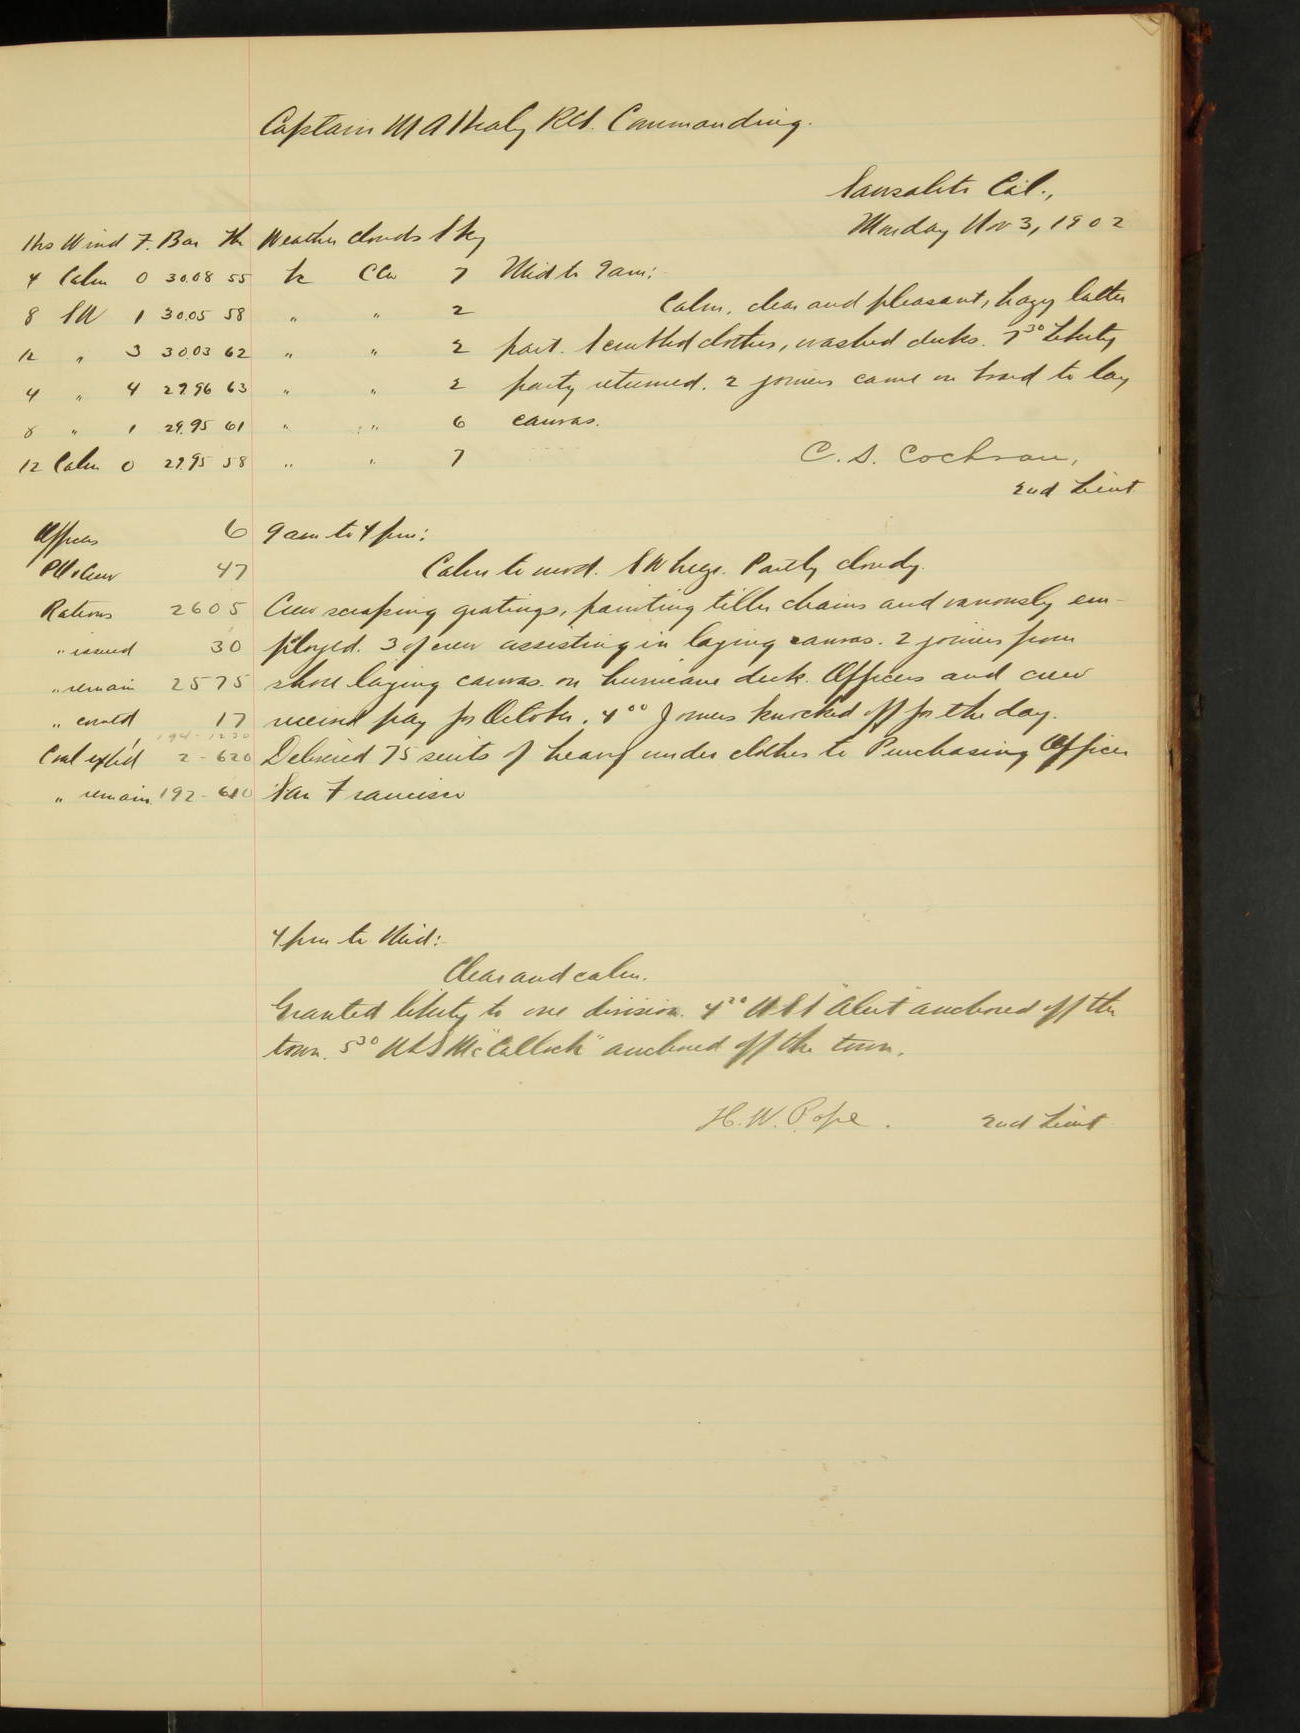 Captain M A Healy RCS. Commanding.
Sausalito Cal.,
Monday Nov 3, 1902
Hrs Wind F. Bar Th Weather clouds Sky
4 Calm 0 30.08 55 7 Mid to 9 am:
8 SW 1 30.05 58 " " 2 Calm, clear and pleasant, hazy latter
12 " 3 30.03 62 " " 2 part. Scrubbed clothes, washed decks. 7 30 Liberty
4 " 4 29.96 63 " " 2 party returned. 2 joiners came on board to lay
8 " 1 29.95 61 " " 6 canvas.
12 Calm 0 29.95 58 " " 7 C. S. Cochran,
2nd Lieut
Officers 6 9 am to 4 pm:
PO & Crew 47 Calm to mod. SW brgs. Partly cloudy.
Rations 2605 Crew scraping gratings, painting tiller chains and variously em-
" issued 30 ployed. 3 of crew assisting in laying canvas. 2 joiners from
" remain 2575 shore laying canvas on hurricane deck. Officers and crew
" com'td 17 received pay for October. 4 00 Joiners knocked off for the day.
194 - 1230
Coal exp'd 2 - 620 Delivered 75 suits of heavy under clothes to Purchasing Officer
" remain 192 - 610 San Francisco
4 pm to Mid:
Clear and calm.
Granted liberty to one division. 4 20 USS "Alert" anchored off the
town. 5 30 USS "McCulloch" anchored off the town.
H. W. Pope. 2nd Lieut